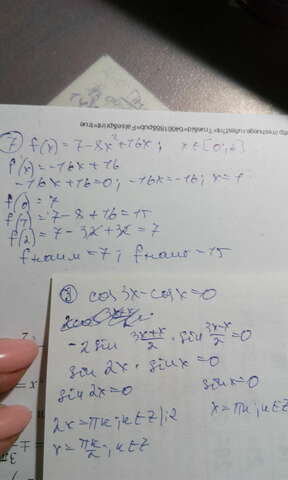 7 f(x) = 7-8x²+16x; x∈[0;2]
f'(x) = -16x+16
-16x+16=0; -16x=-16; x=1
f(0) = 7
f(1) = 7-8+16=15
f(2) = 7-32+32=7
fнаим = 7; fнаиб = 15
cos3x-cosx=0
-2sin (3x+x)/2 · sin (3x-x)/2 =0
sin 2x · sinx = 0
sin2x=0 sinx=0
2x=πk; k∈Z |:2 x=πk; k∈Z
x=πk/2; k∈Z